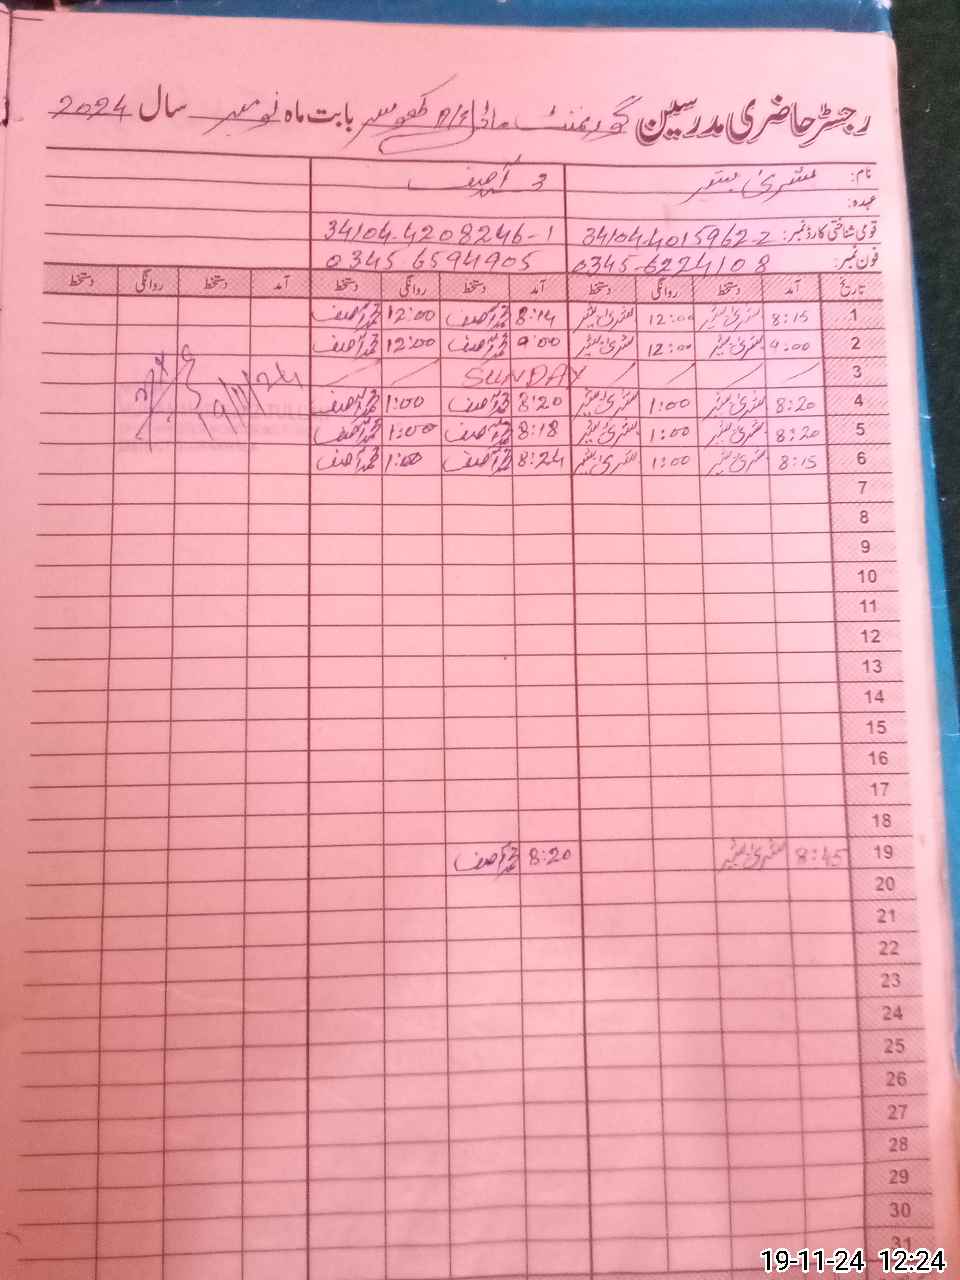 رجسٹر حاضری مدرسین گورنمنٹ بابت ماہ نومبر سال 2024
نام: بشریٰ آصف
عہدہ:
قومی شناختی کارڈ نمبر: 34104-4015962-2 34104-4208246-1
فون نمبر: 0345-6224108 0345-6594905
تاریخ آمد دستخط روانگی دستخط آمد دستخط روانگی دستخط آمد دستخط روانگی دستخط
1 8:15 12:00 8:14 محمد آصف 12:00 محمد آصف
2 9:00 12:00 9:00 محمد آصف 12:00 محمد آصف
3 SUNDAY
4 8:20 1:00 8:20 محمد آصف 1:00 محمد آصف
5 8:20 1:00 8:18 محمد آصف 1:00 محمد آصف
6 8:15 1:00 8:24 محمد آصف 1:00 محمد آصف
19/11/24
7
8
9
10
11
12
13
14
15
16
17
18
19 8:45 8:20 محمد آصف
20
21
22
23
24
25
26
27
28
29
30
31
19-11-24 12:24